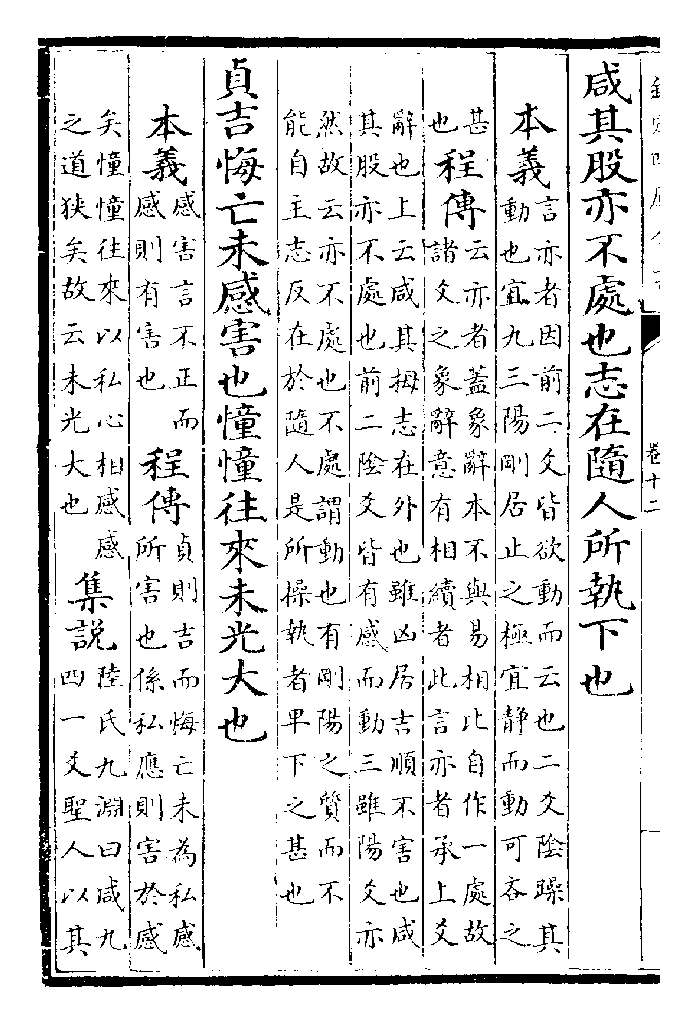 卷十二
咸其股亦不處也志在隨人所執下也
本義
言亦者因前二爻皆欲動而云也二爻陰躁其
動也宜九三陽剛居止之極宜静而動可吝之
甚
也
程傳
云亦者蓋象辭本不與易相比自作一處故
諸爻之象辭意有相續者此言亦者承上爻
辭也上云咸其拇志在外也雖凶居吉順不害也咸
其股亦不處也前二陰爻皆有感而動三雖陽爻亦
然故云亦不處也不處謂動也有剛陽之質而不
能自主志反在於隨人是所操執者卑下之甚也
貞吉悔亡未感害也憧憧往來未光大也
本義
感害言不正而
感則有害也
程傳
貞則吉而悔亡未為私感
所害也係私應則害於感
矣憧憧往來以私心相感感
之道狹矣故云未光大也
集說
陸氏九淵曰咸九
四一爻聖人以其